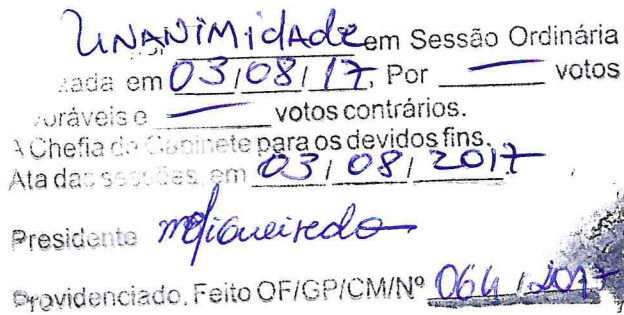 UNANIMIdAde em Sessão Ordinária
em 03/08/17, Por — votos
e — votos contrários.
A Chefia do Gabinete para os devidos fins.
Ata das sessões, em 03/08/2017
Presidente
Providenciado, Feito OF/GP/CM/Nº 064/2017